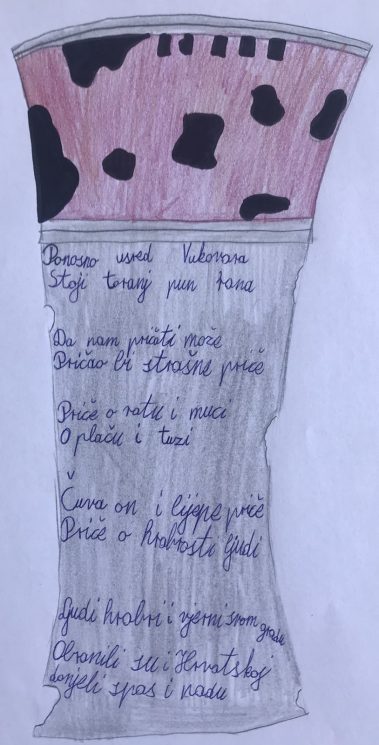 Ponosno usred Vukovara
Stoji toranj pun rana
Da nam pričati može
Pričao bi strašne priče
Priče o ratu i muci
O plaču i tuzi
Čuva on i lijepe priče
Priče o hrabrosti ljudi
Ljudi hrabri i vjerni svom gradu
Obranili su i Hrvatskoj
donjeli spas i nadu